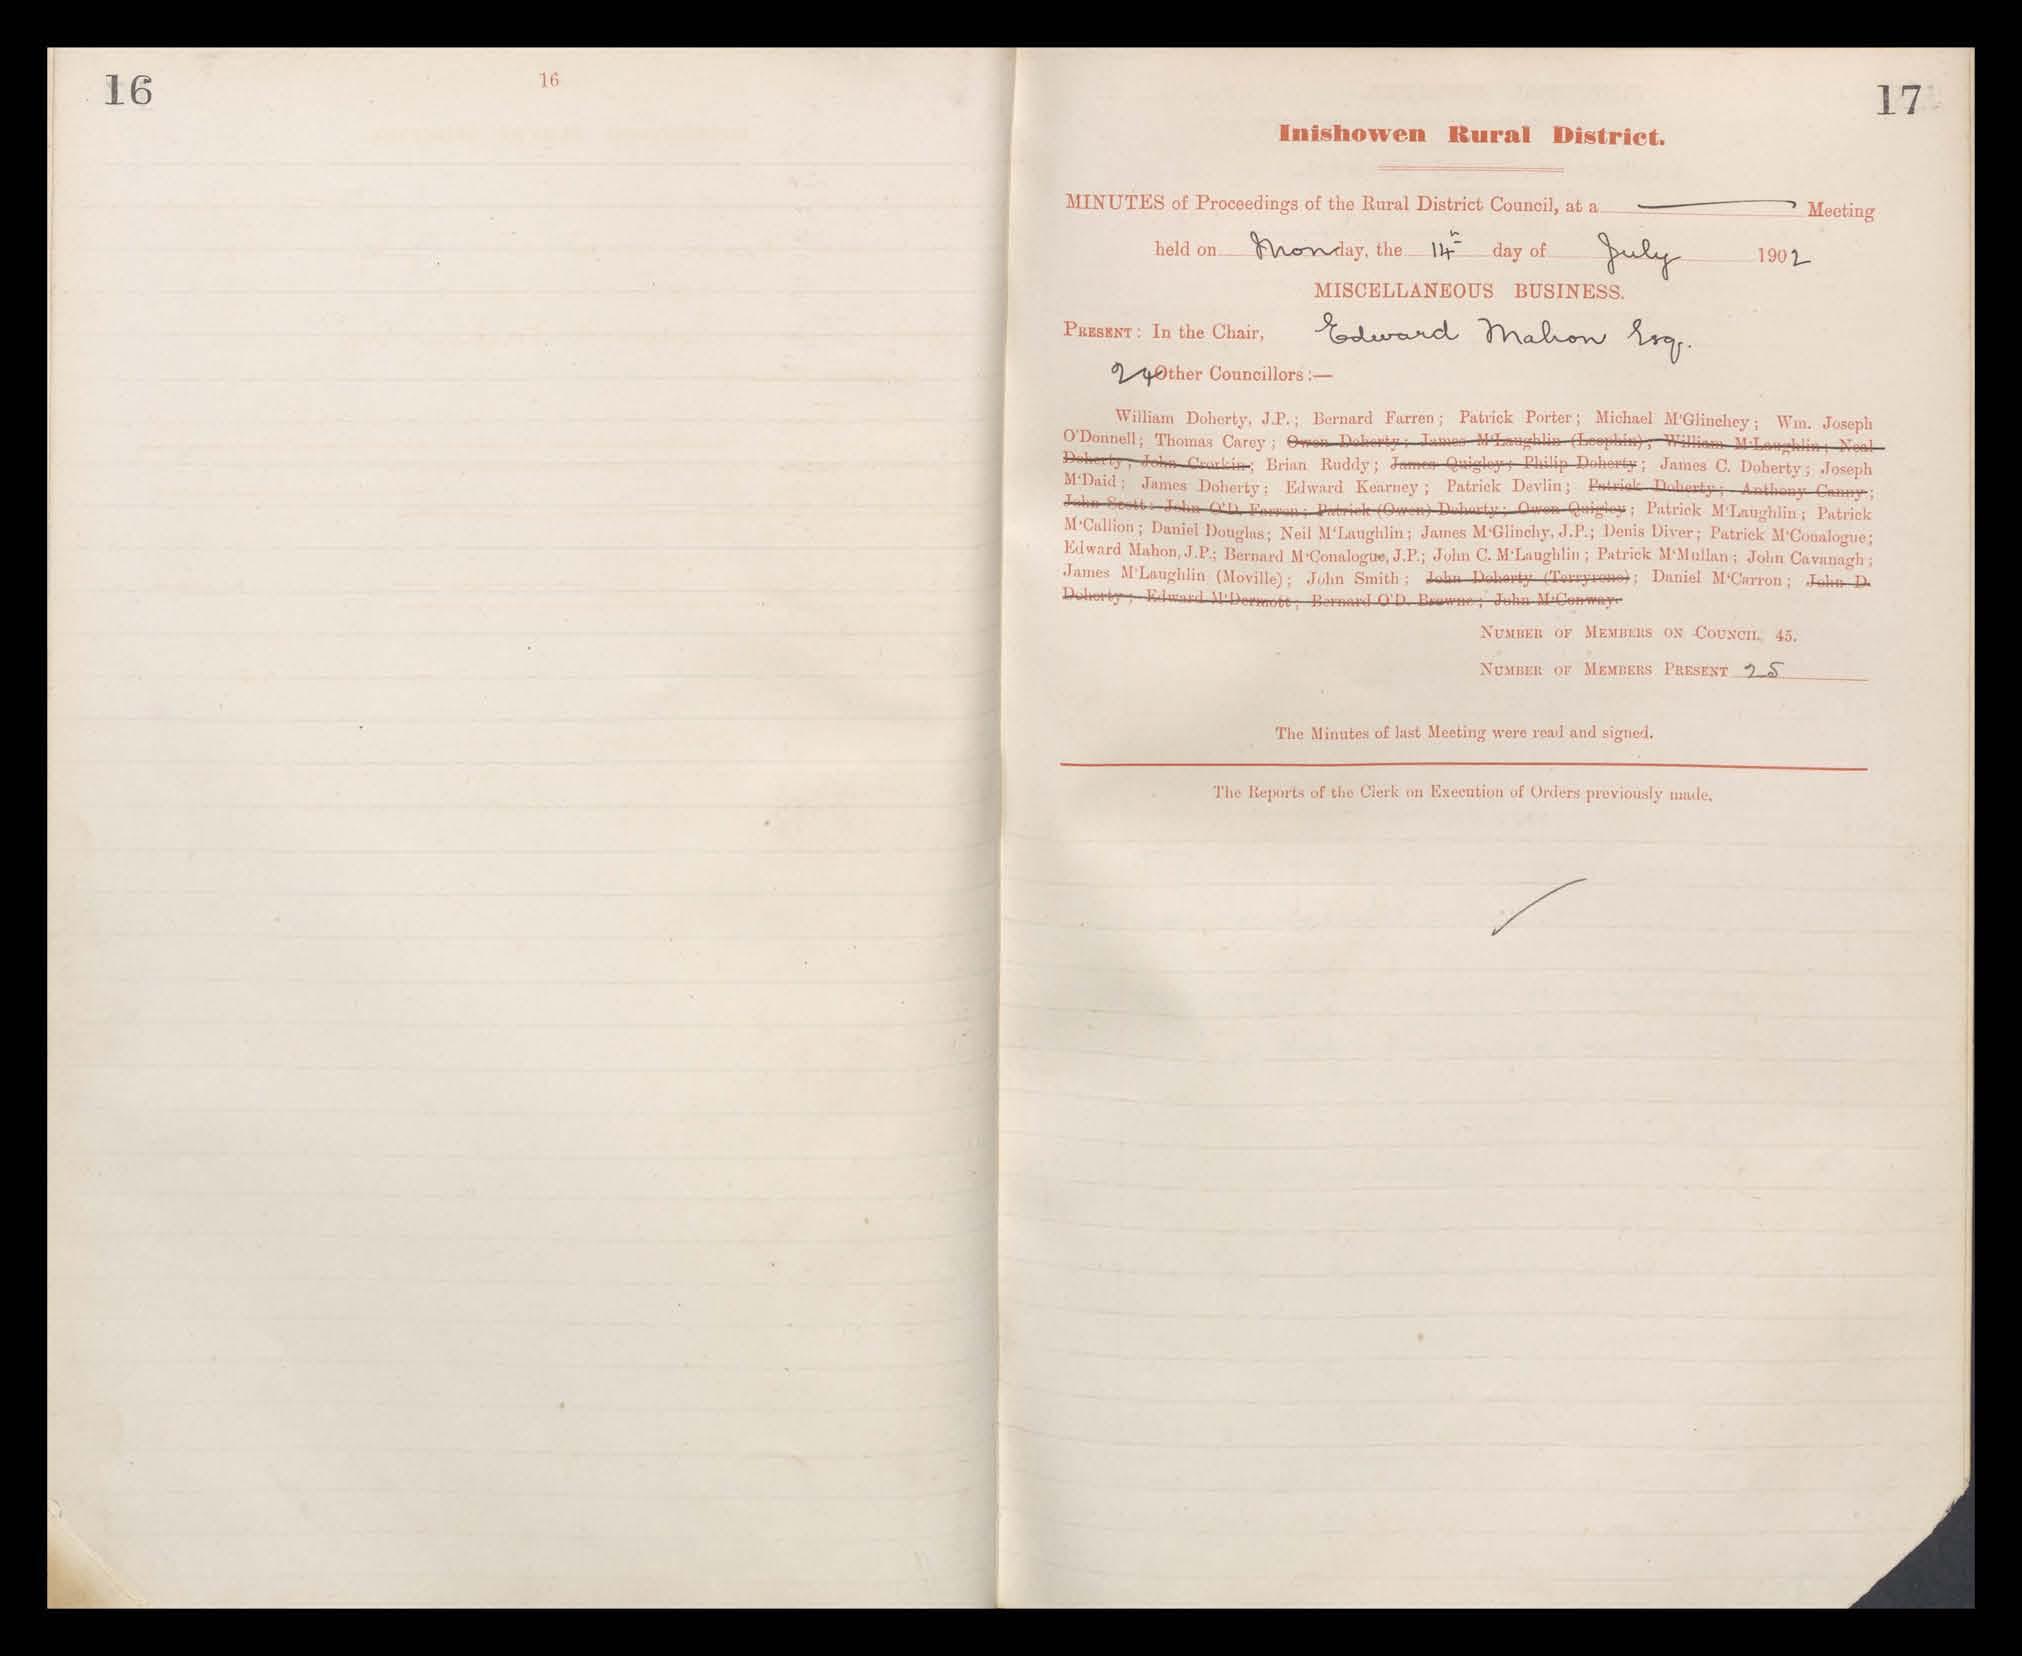 16
16
17
Inishowen Rural District.
MINUTES of Proceedings of the Rural District Council, at a Meeting
held on Monday, the 14th day of July 1902
MISCELLANEOUS BUSINESS.
PRESENT: In the Chair, Edward Mahon Esq.
24 Other Councillors:—
William Doherty, J.P.; Bernard Farren; Patrick Porter; Michael M'Glinchey; Wm. Joseph
O'Donnell; Thomas Carey; Owen Doherty; James M'Laughlin (Leophin); William M'Laughlin; Neal
Doherty; John Crorkin; Brian Ruddy; James Quigley; Philip Doherty; James C. Doherty; Joseph
M'Daid; James Doherty; Edward Kearney; Patrick Devlin; Patrick Doherty; Anthony Canny;
John Scott; John O'D. Farren; Patrick (Owen) Doherty; Owen Quigley; Patrick M'Laughlin; Patrick
M'Callion; Daniel Douglas; Neil M'Laughlin; James M'Glinchy, J.P.; Denis Diver; Patrick M'Conalogue;
Edward Mahon, J.P.; Bernard M'Conalogue, J.P.; John C. M'Laughlin; Patrick M'Mullan; John Cavanagh;
James M'Laughlin (Moville); John Smith; John Doherty (Terryrone); Daniel M'Carron; John D.
Doherty; Edward M'Dermott; Bernard O'D. Browne; John M'Conway.
NUMBER OF MEMBERS ON COUNCIL 45.
NUMBER OF MEMBERS PRESENT 25
The Minutes of last Meeting were read and signed.
The Reports of the Clerk on Execution of Orders previously made.